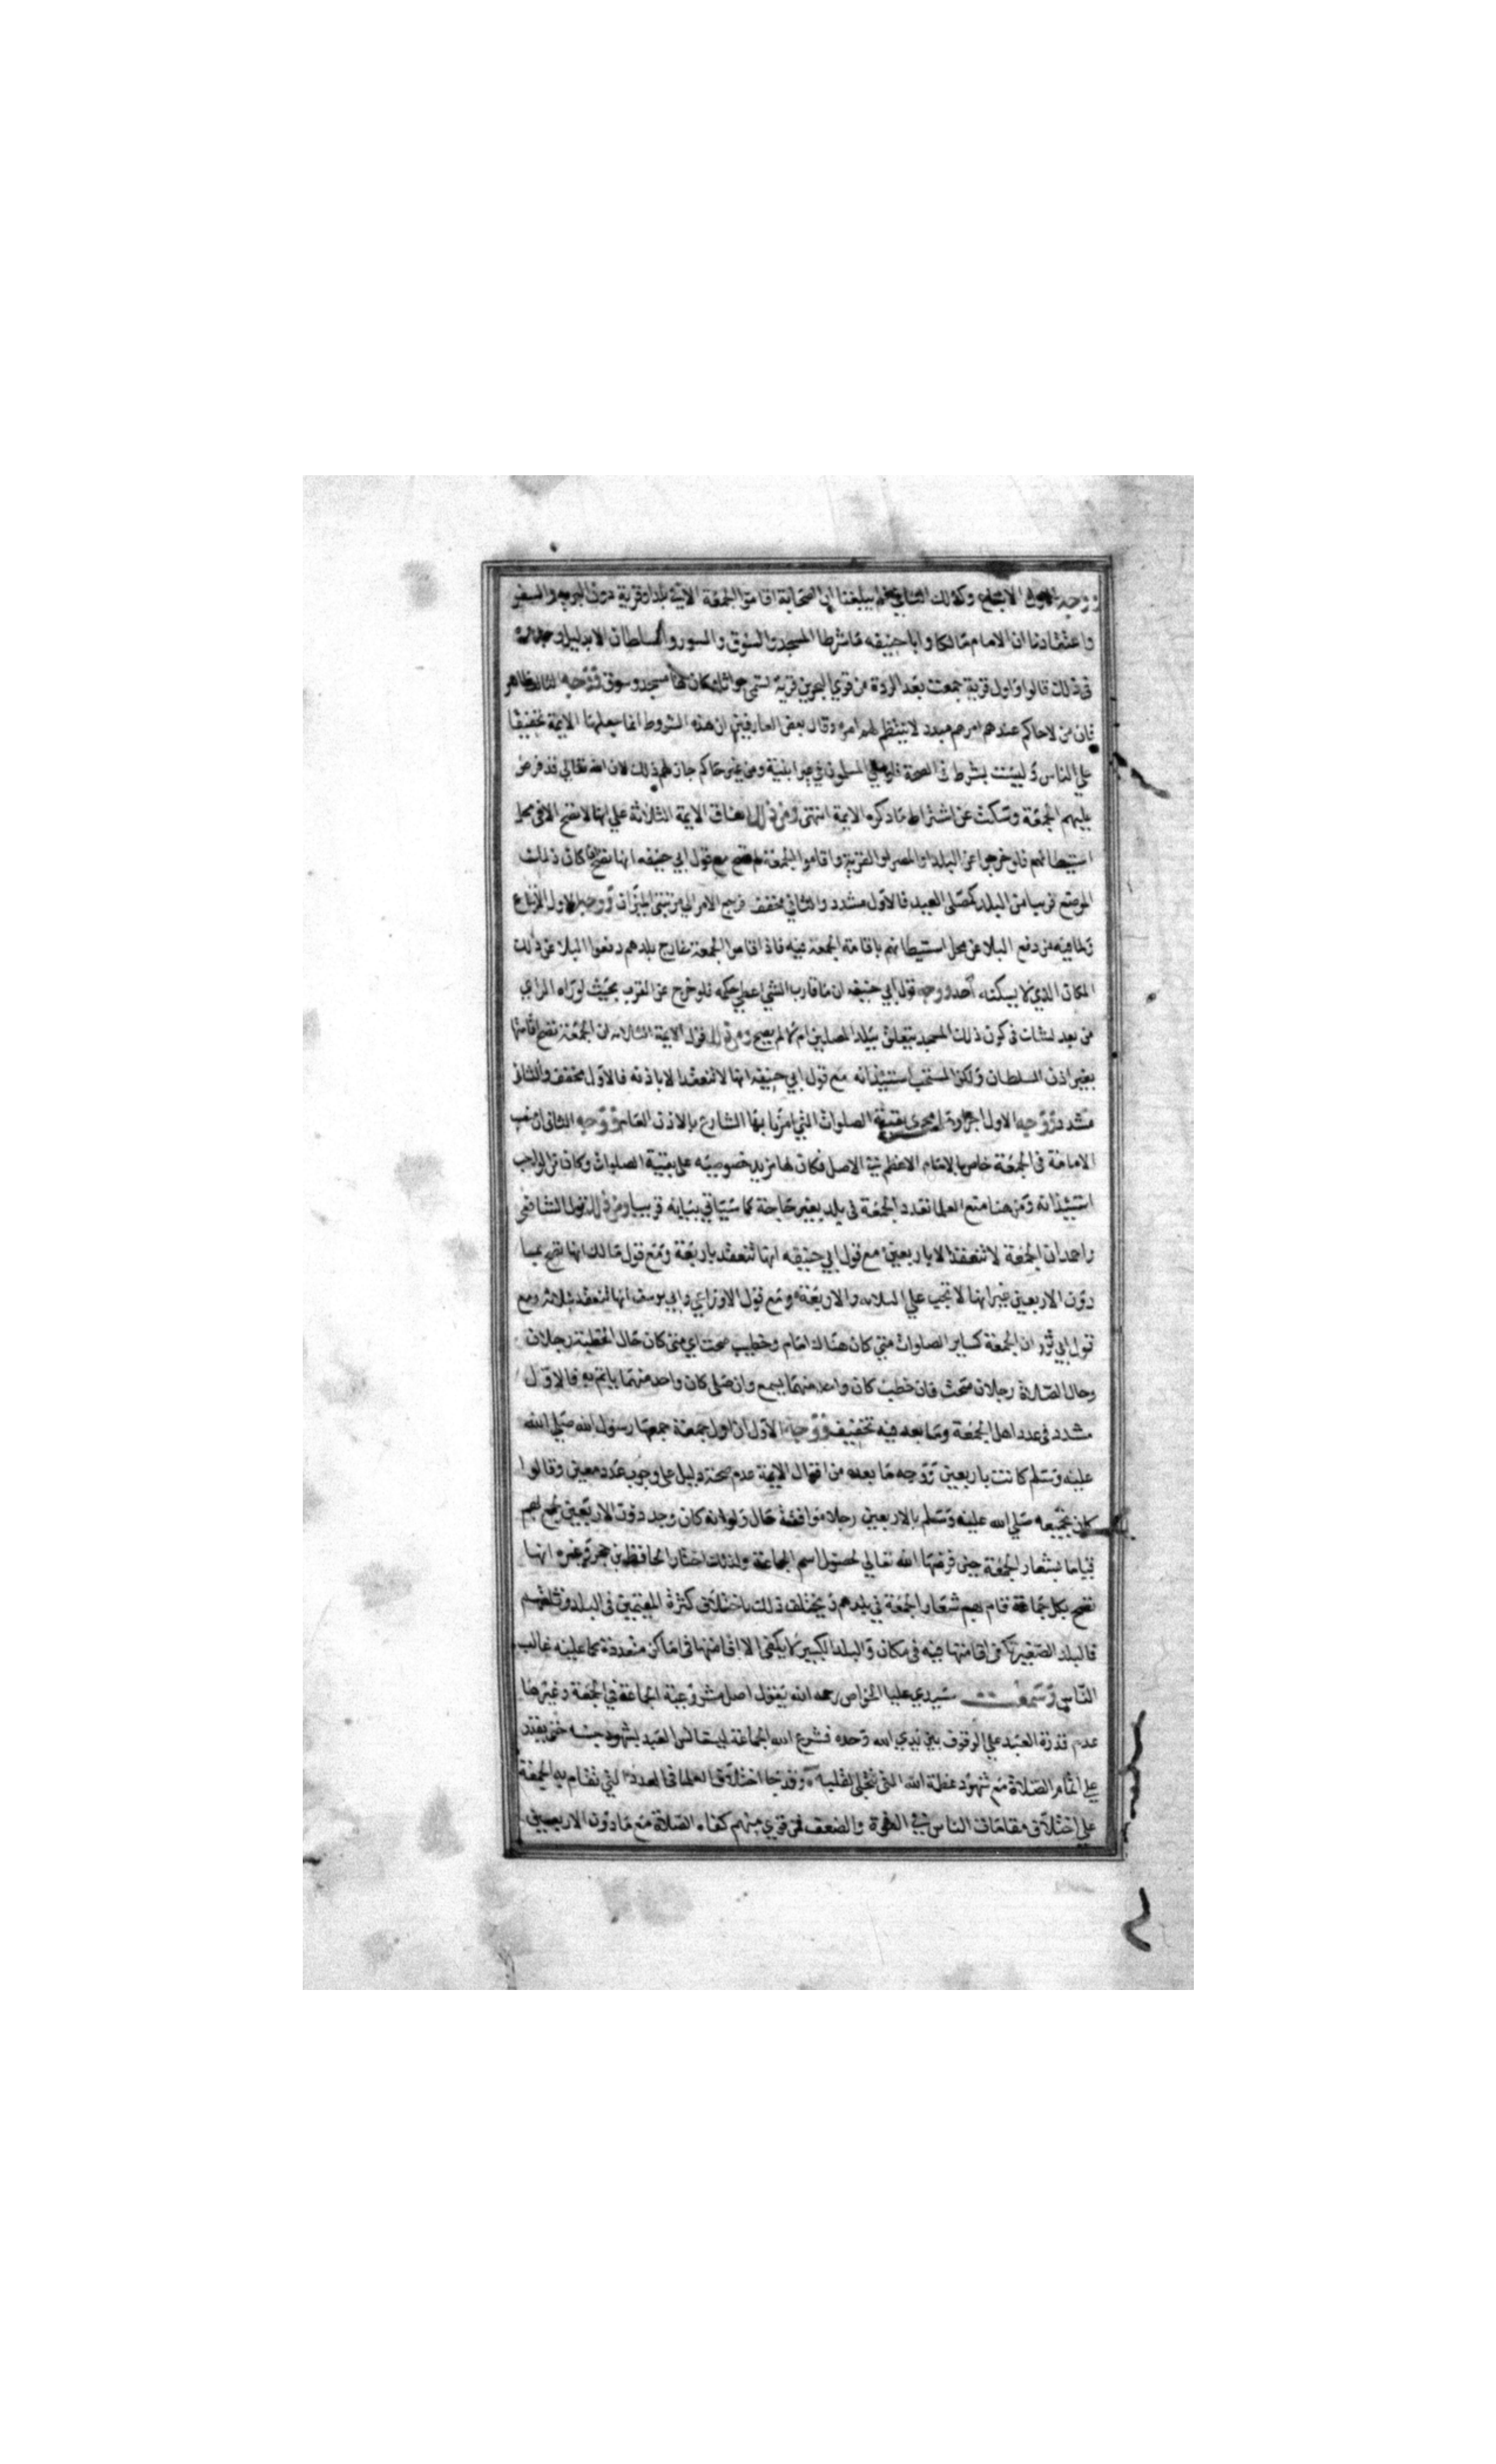 ووجه الاول الاتباع وكذلك الثاني فلم يبلغنا ان الصحابة اقاموا الجمعة الا في بلد او قرية دون البرية والسفر
واعتقادنا ان الامام مالكا وابا حنيفه ما شرطا المسجد والسوق والسور والسلطان الا بدليل وجداه
في ذلك قالوا واول قرية جمعت بعد الردة من قري البحرين قرية تسمى جواثا وكان لها مسجد وسوق ووجه الثالث ظاهر
فان من لا حاكم عندهم امرهم مبدد لا ينتظم لهم امر وقال بعض العارفين ان هذه الشروط انما جعلها الايمة تخفيفا
علي الناس وليست بشرط في الصحة فلو صلي المسلمون في غير ابنية ومن غير حاكم جاز لهم ذلك لان الله تعالي قد فرض
عليهم الجمعة وسكت عن اشتراط ما ذكره الايمة انتهي ومن ذلك اتفاق الايمة الثلاثة علي انها لا تصح الا في محل
استيطانهم فلو خرجوا عن البلد او المصر او القرية واقاموا الجمعة لم تصح مع قول ابي حنيفه انها تصح اذا كان ذلك
الموضع قريبا من البلد كمصلى العيد فالاول مشدد والثاني مخفف فرجع الامر الي مرتبتي الميزان ووجه الاول الاتباع
ولما فيه من دفع البلا عن محل استيطانهم باقامة الجمعة فيه فاذا اقاموا الجمعة خارج بلدهم دفعوا البلا عن ذلك
المكان الذي لا يسكنه احد ووجه قول ابي حنيفه ان ما قارب الشي اعطي حكمه فلو خرج عن القرب بحيث لو راه الراي
من بعد لشك في كون ذلك المسجد يتعلق ببلد المصلين ام لا لم يصح ومن ذلك قول الايمة الثلاثه ان الجمعة تصح اقامتها
بغير اذن السلطان ولكن المستحب استيذانه مع قول ابي حنيفه انها لا تنعقد الا باذنه فالاول مخفف والثاني
مشدد ووجه الاول اجراوها مجرى بقية الصلوات التي امرنا بها الشارع بالاذن العام ووجه الثاني ان منصب
الامامة في الجمعة خاص بالامام الاعظم في الاصل فكان لها مزيد خصوصيه على بقية الصلوات وكان من الواجب
استيذانه ومن هنا منع العلما تعدد الجمعة في بلد بغير حاجة كما سياتي بيانه قريبا ومن ذلك قول الشافعي
واحمد ان الجمعة لا تنعقد الا باربعين مع قول ابي حنيفه انها تنعقد باربعة ومع قول مالك انها تصح بما
دون الاربعين غير انها لا تجب علي الثلاثه والاربعة ومع قول الاوزاعي وابي يوسف انها تنعقد بثلاثة ومع
قول ابي ثور ان الجمعة كساير الصلوات متي كان هناك امام وخطيب صحت اي متى كان حال الخطبة رجلان
وحال الصلاة رجلان صحت فان خطب كان واحد منهما يسمع وان صلى كان واحد منهما ياتم به فالاول
مشدد في عدد اهل الجمعة وما بعده فيه تخفيف ووجه الاول ان اول جمعة جمعها رسول الله صلي الله
عليه وسلم كانت باربعين ووجه ما بعده من اقوال الايمة عدم صحة دليل على وجوب عدد معين وقالوا
كان تجميعه صلي الله عليه وسلم بالاربعين رجلا موافقة حال ولو انه كان وجد دون الاربعين لجمع بهم
قياما بشعار الجمعة حين فرضها الله تعالي لحصول اسم الجماعة ولذلك اختار الحافظ بن حجر وغيره انها
تصح بكل جماعة قام بهم شعار الجمعة في بلدهم ويختلف ذلك باختلاف كثرة المقيمين في البلد وقلتهم
فالبلد الصغير تكفي اقامتها فيه في مكان والبلد الكبير لا يكفي الا اقامتها في اماكن متعددة كما عليه غالب
الناس وسمعت سيدي عليا الخواص رحمه الله يقول اصل مشروعية الجماعة في الجمعة وغيرها
عدم قدرة العبد علي الوقوف بين يدي الله وحده فشرع الله الجماعة ليستانس العبد بشهود جنسه حتى يقدر
علي اتمام الصلاة مع شهود عظمة الله التي تتجلى لقلبه وقد جا اختلاف العلما في العدد الذي تقام به الجمعة
علي اختلاف مقامات الناس في القوة والضعف فمن قوي منهم كفاه الصلاة مع ما دون الاربعين